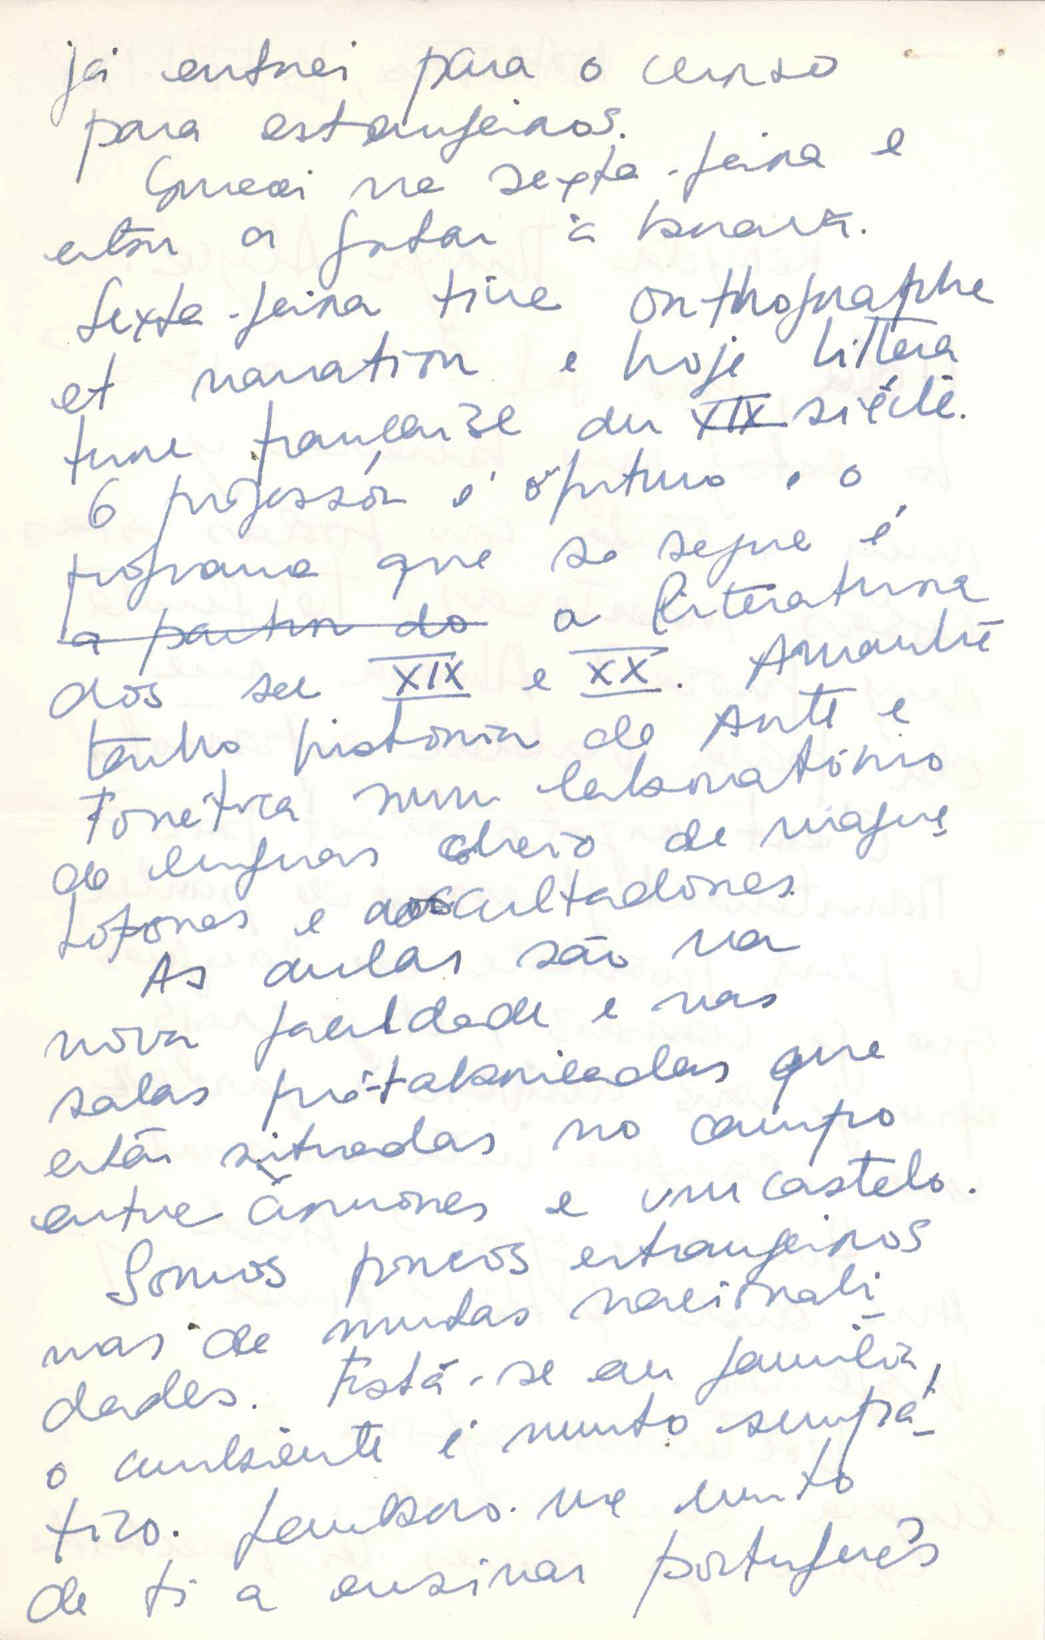 já entrei para o curso
para estrangeiros.
Comecei na sexta-feira e
estou a gostar à brava.
Sexta-feira tive orthographe
et narration e hoje littera
ture française du XIX siécle.
O professor é óptimo e o
programa que se segue é
a partir do a literatura
dos sec XIX e XX. Amanhã
tenho história de Arte e
Fonética num laboratório
de linguas cheio de magne
tofones e auscultadores.
As aulas são na
nova faculdade e nas
salas pré-fabricadas que
estão situadas no campo
entre árvores e um castelo.
Somos poucos estrangeiros
mas de muitas nacionali_
dades. Está-se em família,
o ambiente é muito simpá_
tico. Lembro-me muito
de ti a ensinar português